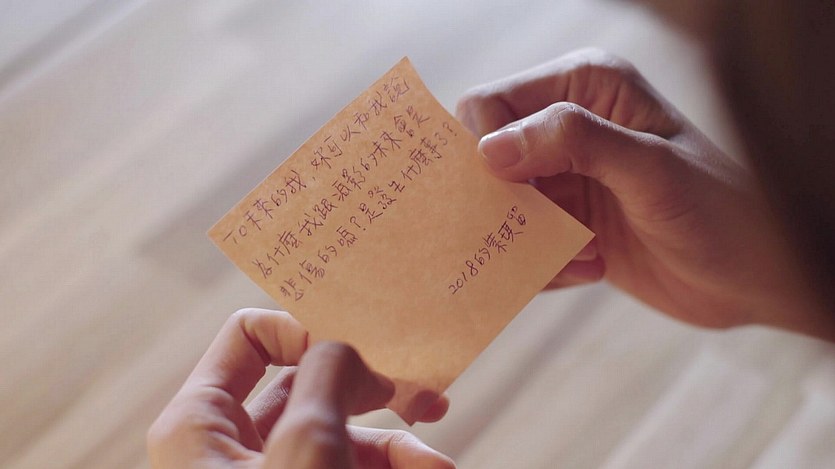 To 未來的我，妳可以和我說
為什麼我跟影的未來會是
悲傷的嗎？是發生什麼事了？
2018的琪